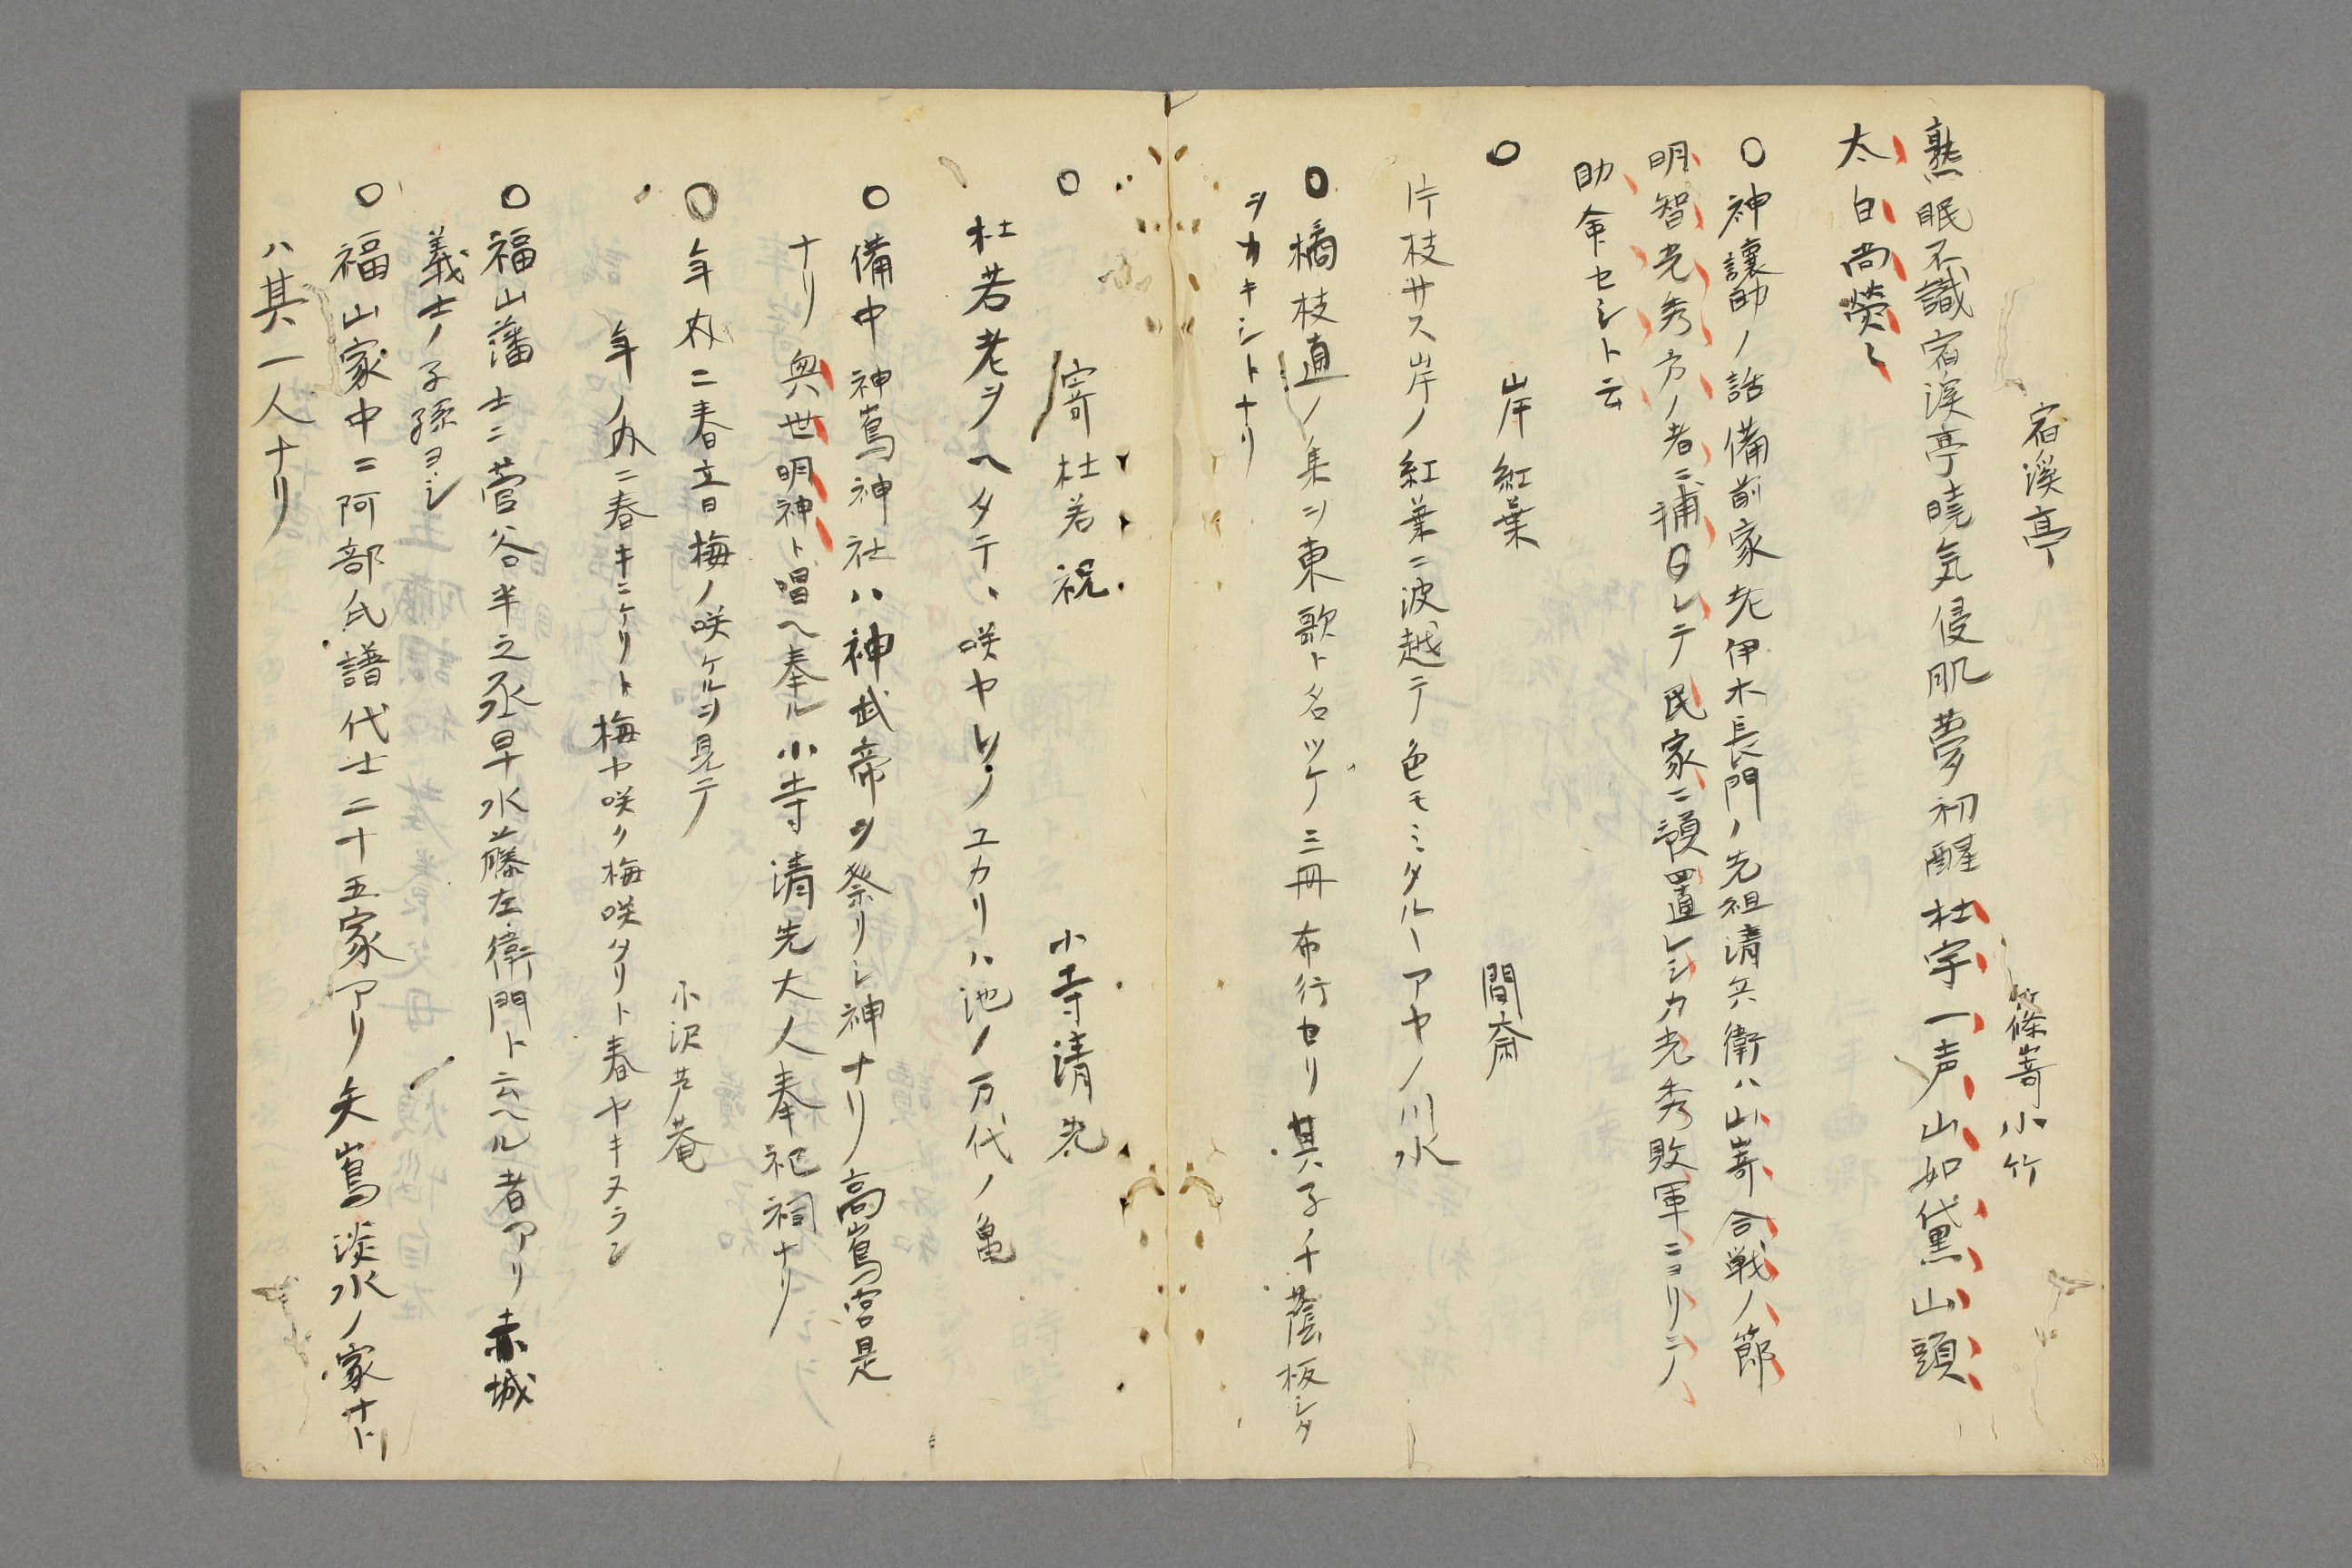 宿溪亭　篠嵜小竹
熟眠不識宿溪亭暁気侵肌夢初醒杜宇一声山如黛山頭
太白尚熒〻
○神讓助ノ話備前家老伊木長門ノ先祖清兵衛ハ山嵜合戦ノ節
明智光秀方ノ者ニ捕ハレテ民家ニ預置レシカ光秀敗軍ニヨリテ
助命セシト云
○　岸紅葉　間斎
片枝サス岸ノ紅葉ニ波越テ色モミタルヽアヤノ川水
○橘枝直ノ集ヲ東歌ト名ツケ三冊布行セリ其子ノ千蔭板シタ
ヲカキシトナリ
○　寄杜若祝　小寺清先
杜若老ヲヘタテヽ咲ヤトノユカリハ池ノ万代ノ亀
○備中神嶌神社ハ神武帝ヲ祭リシ神ナリ高嶌宮是
ナリ興世明神ト唱ヘ奉ル小寺清先大人奉祀祠ナリ
○年内ニ春立日梅ノ咲ケルヲ見テ　小沢芦菴
年ノ内ニ春キニケリト梅ヤ咲ク梅咲タリト春ヤキヌラシ
○福山藩士ニ菅谷半之丞早水藤左衛門ト云ヘル者アリ赤城
義士ノ子孫ヨシ
○福山家中ニ阿部氏譜代士二十五家アリ矢嶌淡水ノ家ナト
ハ其一人ナリ